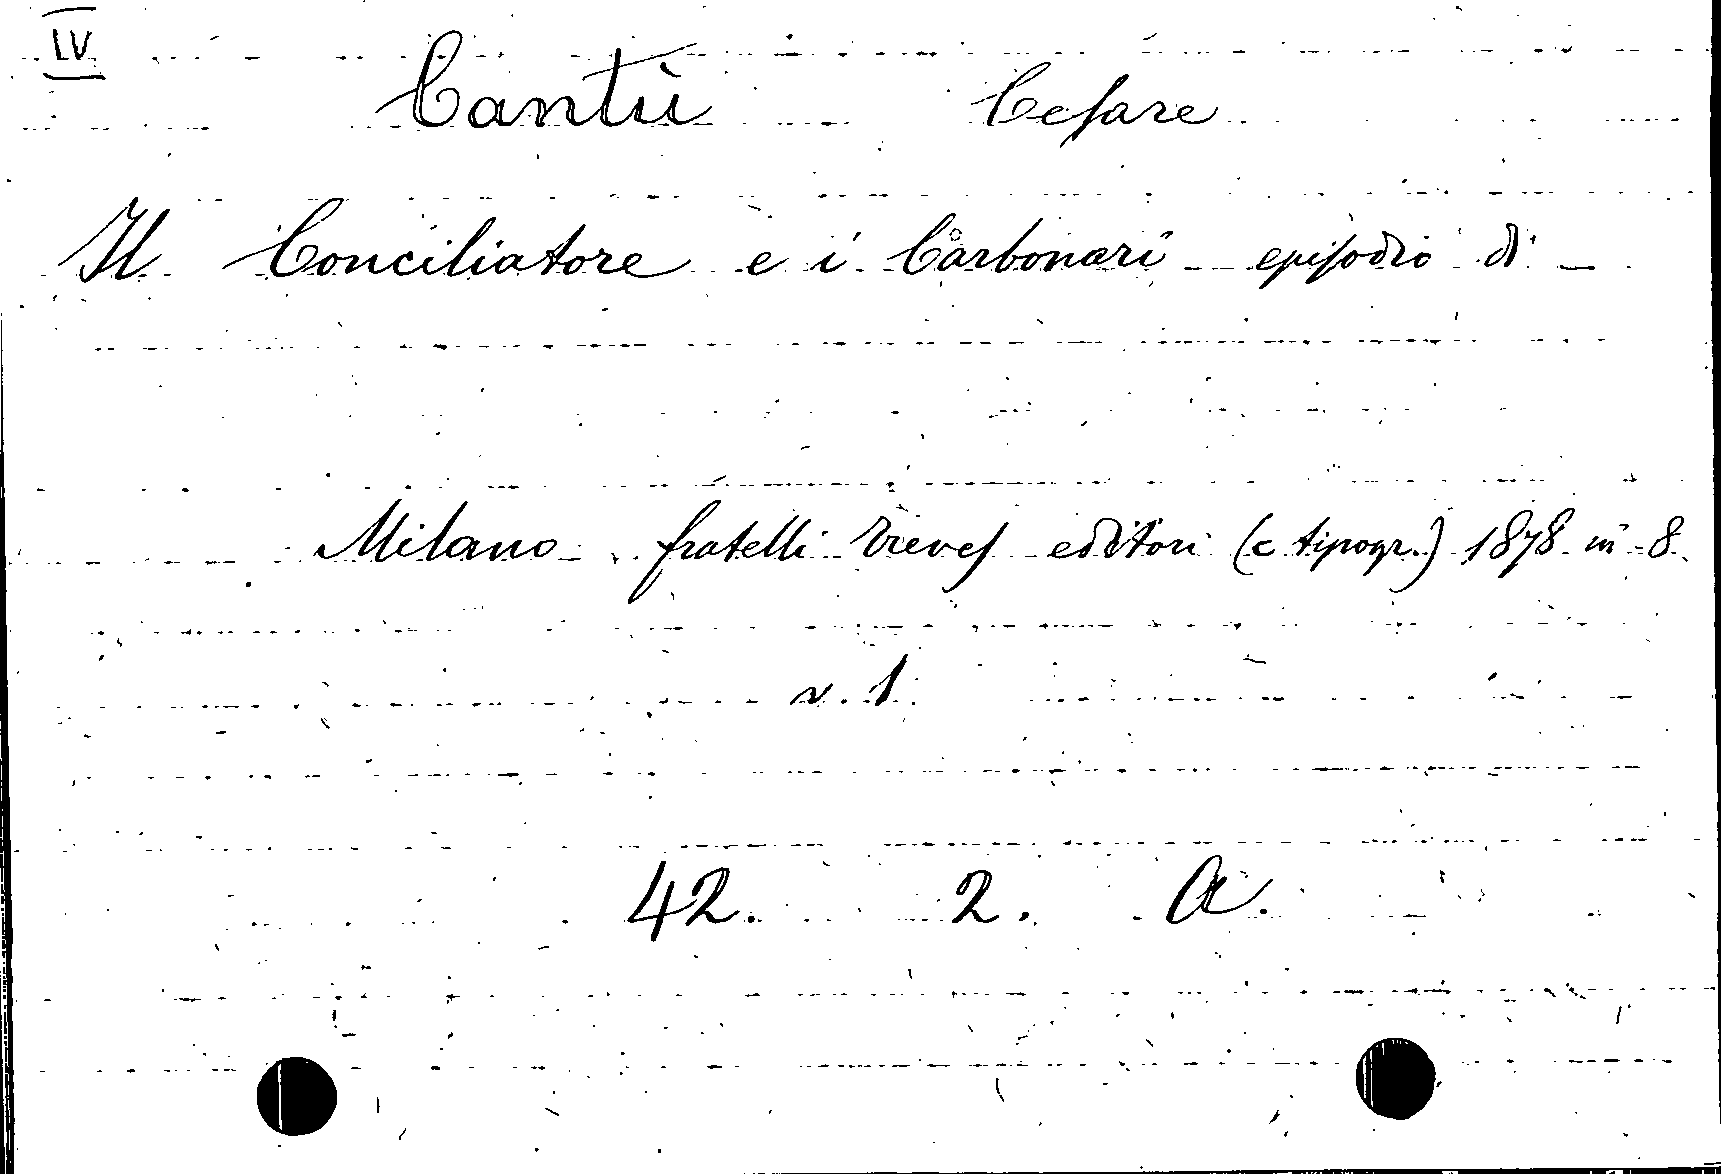 LV
Cantù Cesare
Il Conciliatore e i Carbonari episodio di —
Milano fratelli Treves editori (e tipogr.) 1878 in 8
v. 1
42. 2. A.